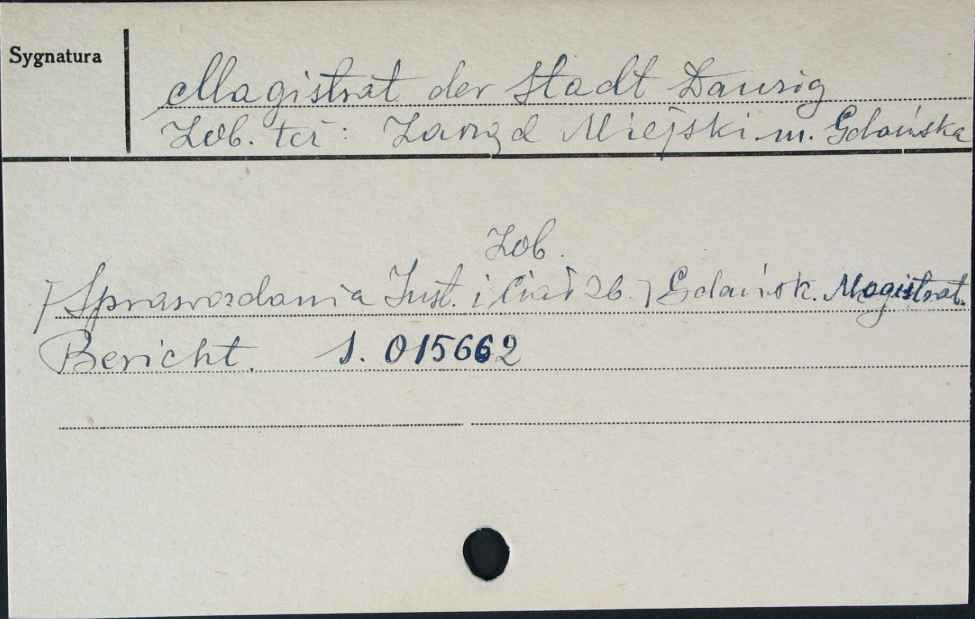 Sygnatura
Magistrat der Stadt Danzig
Zob. też: Zarząd Miejski m. Gdańska
Zob.
/Sprawozdania Inst. i /Gdańsk. Magistrat.
Bericht. S. 015662